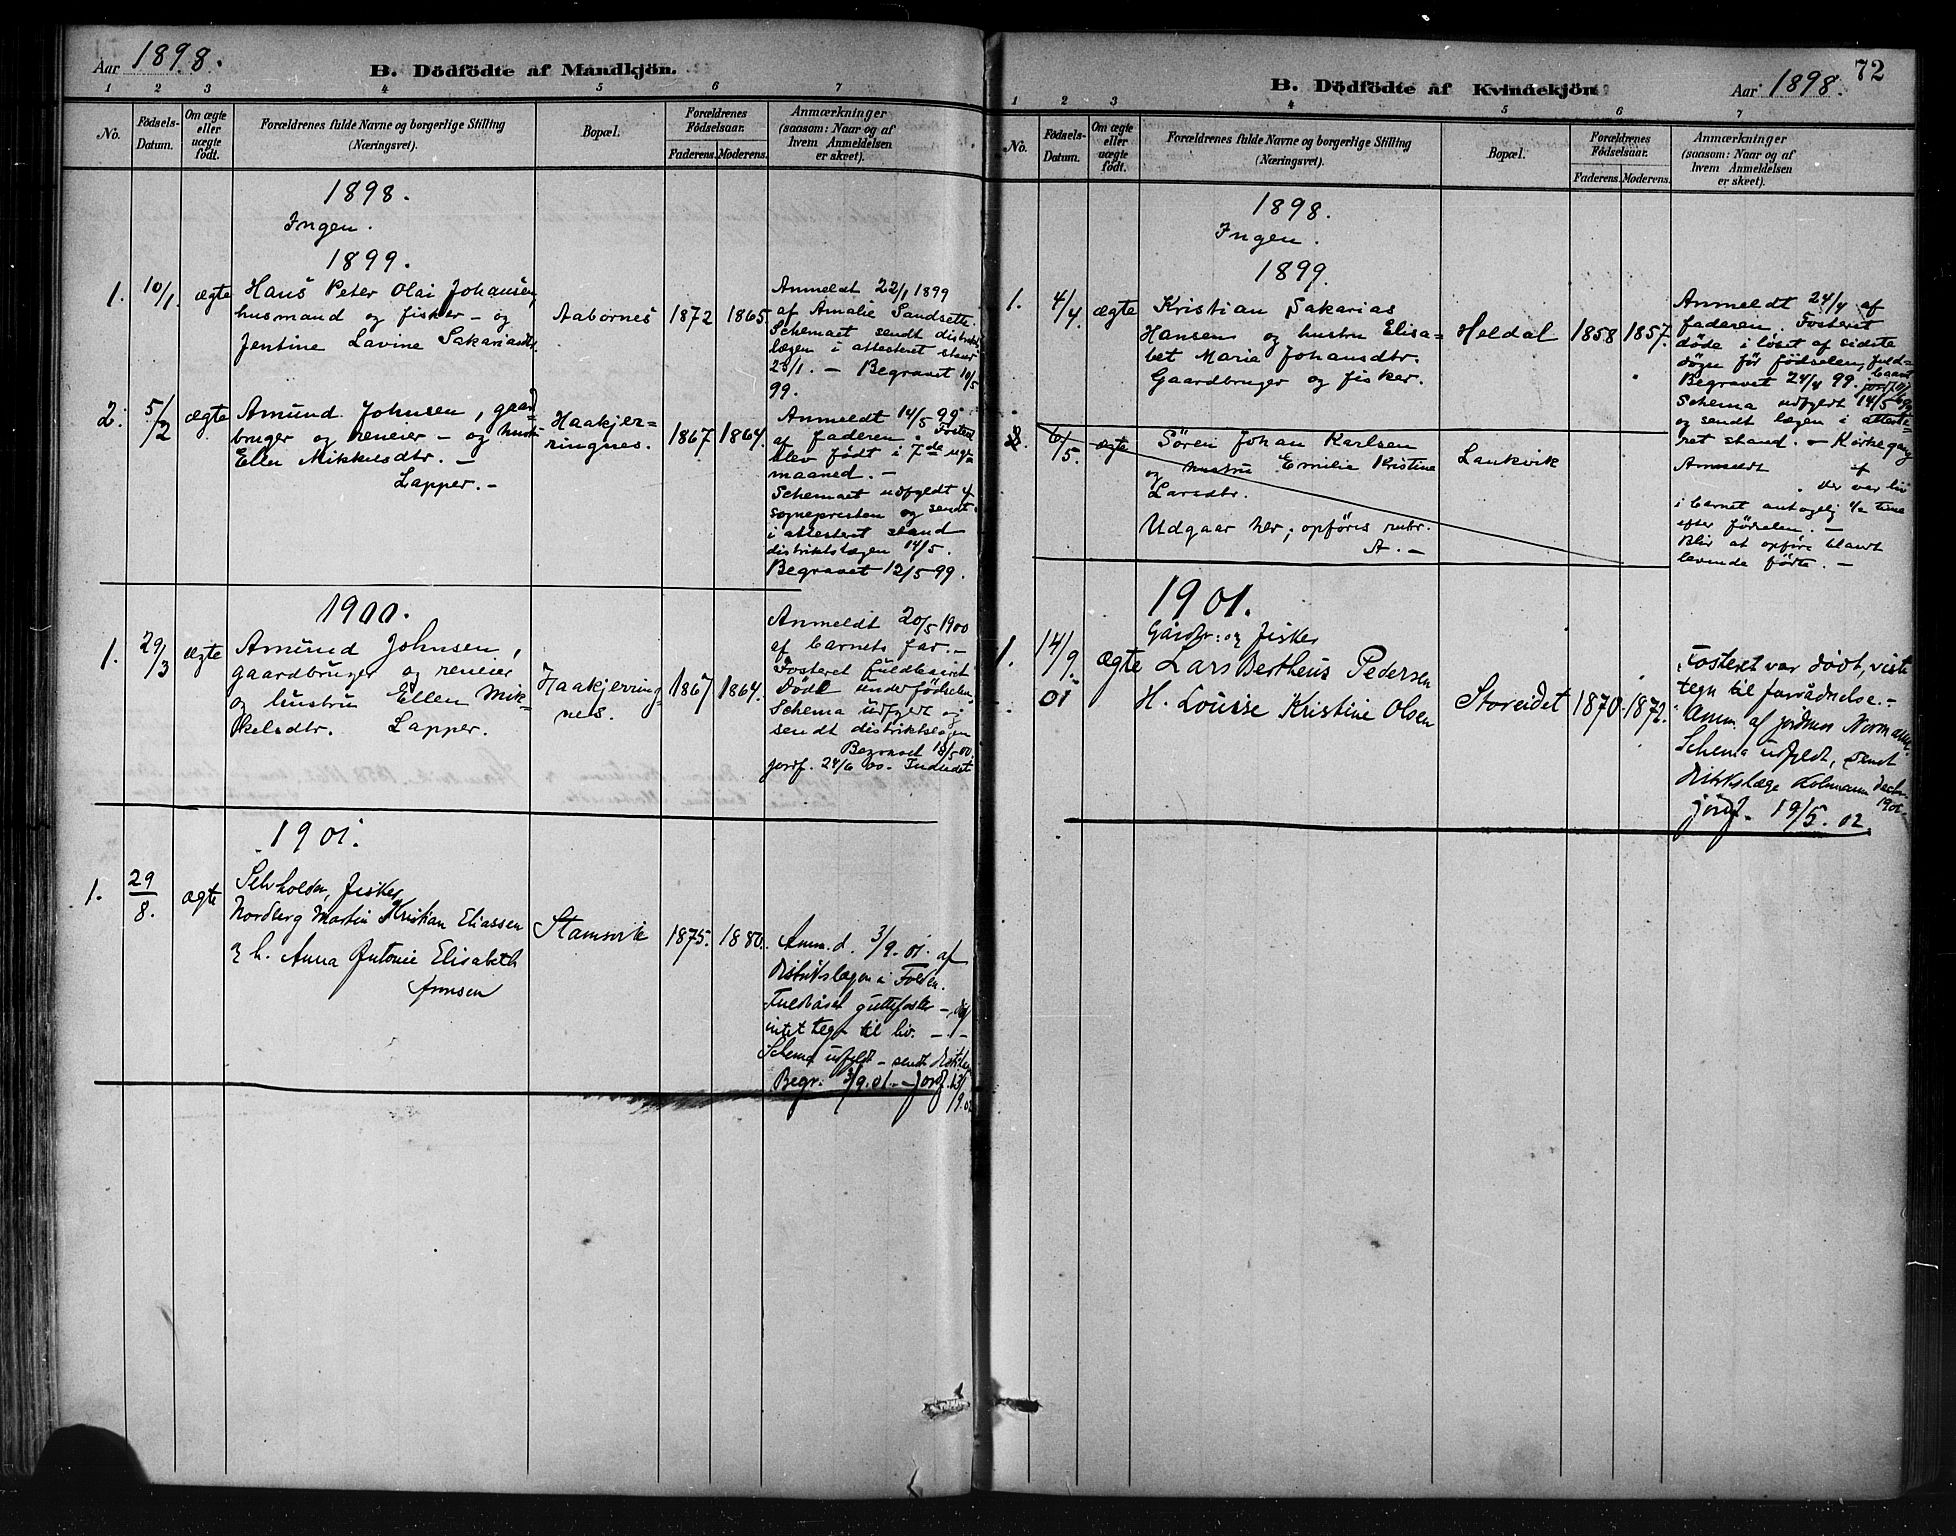 Aar 1898.
B. Dödfödte af Mandkjön.
1 2 3 4 5 6 7
No.
Födsels-
Datum.
Om ægte
eller
uægte
født.
Forældrenes fulde Navne og borgerlige Stilling
(Næringsvei).
Bopæl.
Forældrenes
Födselsaar.
Faderens. Moderens.
Anmærkninger
(saasom: Naar og af
hvem Anmeldelsen
er skeet).
1898.
Ingen.
1899.
1. 10/1. ægte
Hans Peter Olai Johansen,
husmand og fisker – og
Jentine Lavine Sakariasdtr.
Aabornes
1872 1865.
Anmeldt 22/1 1899
af Amalie Sandsette.
Schemaet sendt distrikts
lægen i attesteret stand
23/1. – Begravet 10/5
99.
2. 5/2 ægte
Amund Johnsen, gaard
bruger og reneier – og hustru
Ellen Mikkelsdtr. –
Lapper. –
Haakjer-
ringnes.
1867 1864.
Anmeldt 14/5 99
af faderen. Fosteret
blev født i 7de
maaned. –
Schemaet udfyldt af
sognepresten og sendt
i attesteret stand
distriktslægen 14/5.
Begravet 12/5 99.
1900.
1. 29/3 ægte
Amund Johnsen,
gaardbruger og reneier
og hustru Ellen Mik-
kelsdtr. Lapper.
Haakjerring-
nes.
1867 1864.
Anmeldt 20/5 1900
af barnets far. –
Fosteret fuldbaaret
Døde under fødselen.
Schema udfyldt og
sendt distriktslægen
Begravet 18/5 00.
jordf. 24/6 00.
1901.
1. 29/8. ægte
Selvholder, fisker
Nordberg Martin Kristian Eliassen
& h. Anna Antonie Elisabeth
Arnsen
Stamsvik
1875. 1880.
Anm. d. 3/9. 01. af
Distriktslægen i Folden.
Fuldbåret guttefoster –
intet tegn til liv. – –
Schema udfyldt – sendt
Begr. 3/9. 01. – Jordf. 13/
9. 01
72
B. Dödfödte af Kvindekjön
Aar 1898.
1 2 3 4 5 6 7
No.
Födsels-
Datum.
Om ægte
eller
uægte
født.
Forældrenes fulde Navne og borgerlige Stilling
(Næringsvei).
Bopæl.
Forældrenes
Födselsaar.
Faderens. Moderens.
Anmærkninger
(saasom: Naar og af
hvem Anmeldelsen
er skeet).
1898.
Ingen.
1899.
1. 4/4. ægte
Kristian Sakarias
Hansen og hustru Elisa-
bet Maria Johansdtr.
Gaardbruger og fisker.
Heldal
1858 1857.
Anmeldt 24/4 af
faderen. Fosteret
døde i løbet af sidste
døgn før fødselen,
Begravet 24/4 99.
Schema udfyldt 14/5 99
og sendt lægen i atteste-
ret stand. – Kirkegang
2. 6/5. ægte
Søren Johan Karlsen
og hustru Emilie Kristine
Larsdtr.
Udgaar her; opføres rubr.
A. –
Laukvik
Anmeldt af
der var liv
i barnet antagelig 1/2 time
efter fødselen. –
Blir at opføre blandt
levende fødte. –
1901.
1. 14/9. 01 ægte
Gårdbr: og fisker
Lars Bertheus Pedersen
H. Louisse Kristine Olsen
Storeidet
1870. 1872.
Fosteret var dødt, viste
tegn til forrådnelse. –
Anm. af jordmor Normann.
Schema udfyldt, sendt
Distriktslæge Kolmann Decbr.
1901.
jordf. 19/5. 02.